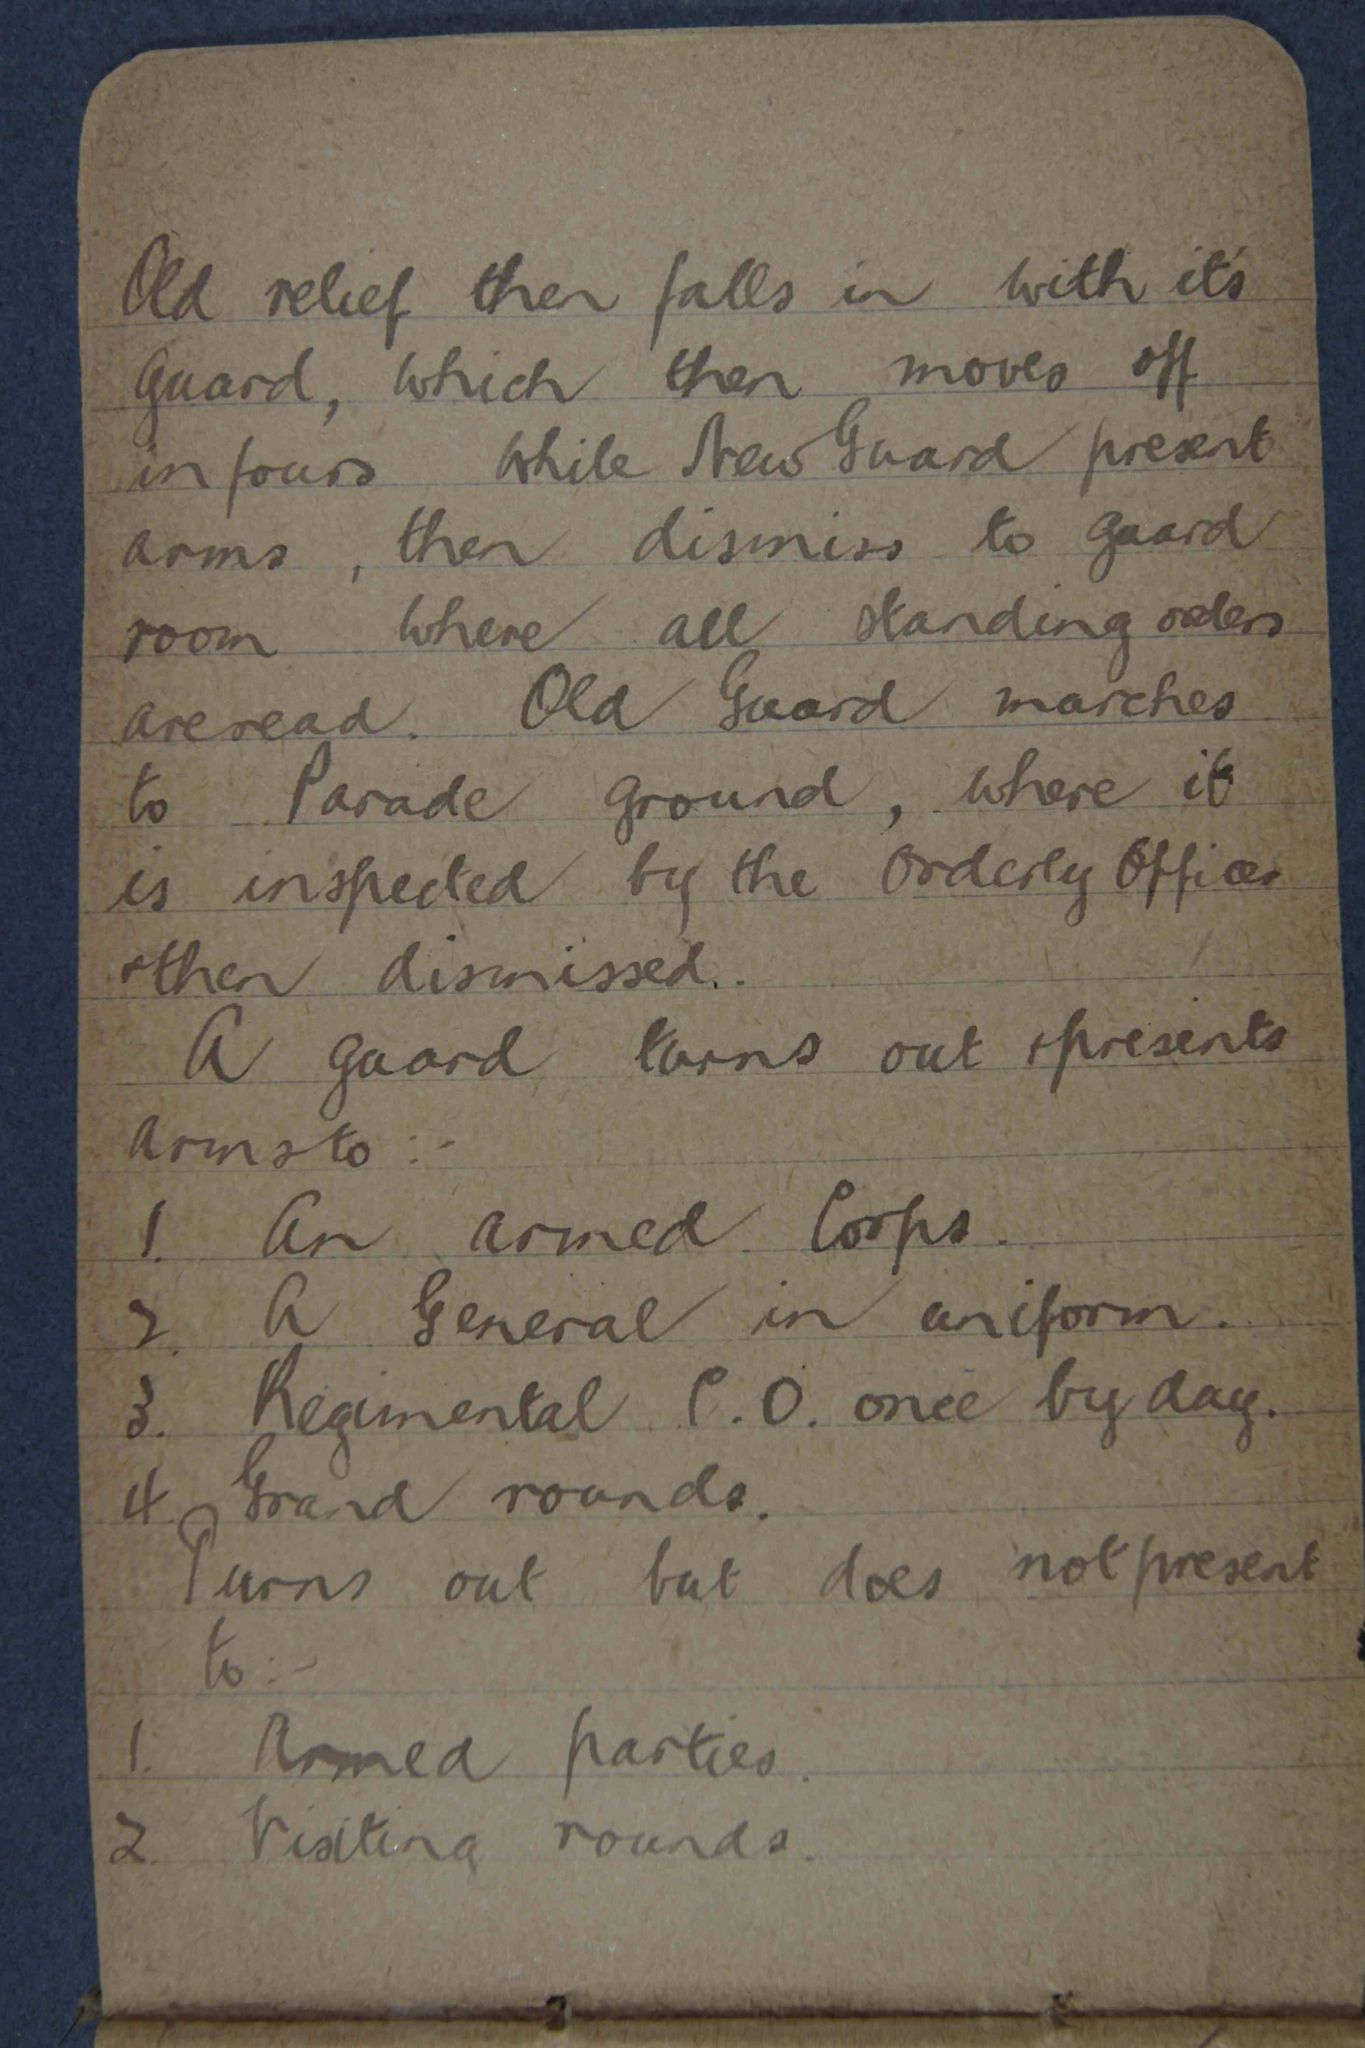 Old relief then falls in with it's
guard, which then moves off
in fours while New Guard present
arms, then dismiss to guard
room where all standing orders
are read. Old Guard marches
to Parade ground, where it
is inspected by the Orderly Officer
& then dismissed..
A guard turns out & presents
arms to :-
1. An armed Corps.
2. A General in uniform.
3. Regimental C.O. once by day.
4. Grand rounds.
Turns out but does not present
to :-
1. Armed parties.
2. Visiting rounds.